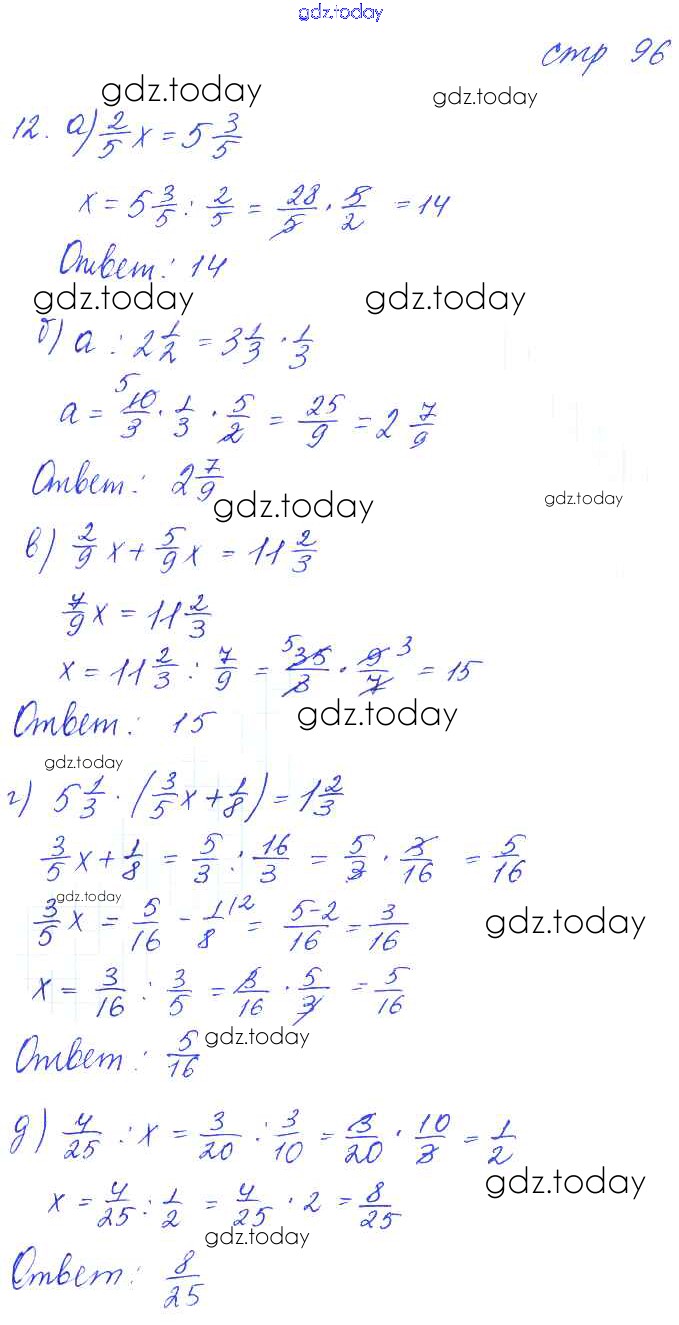 gdz.today
стр 96
gdz.today gdz.today
12. а) 2/5 x = 5 3/5
x = 5 3/5 : 2/5 = 28/5 · 5/2 = 14
Ответ: 14
gdz.today gdz.today
б) a : 2 1/2 = 3 1/3 · 1/3
a = 5 10/3 · 1/3 · 5/2 = 25/9 = 2 7/9
Ответ: 2 7/9
gdz.today gdz.today
в) 2/9 x + 5/9 x = 11 2/3
7/9 x = 11 2/3
x = 11 2/3 : 7/9 = 5 35/3 · 9/7 3 = 15
Ответ: 15
gdz.today
gdz.today
г) 5 1/3 · (3/5 x + 1/8) = 1 2/3
3/5 x + 1/8 = 5/3 : 16/3 = 5/3 · 3/16 = 5/16
gdz.today
3/5 x = 5/16 - 1/8 |2 = 5-2/16 = 3/16
gdz.today
x = 3/16 : 3/5 = 3/16 · 5/3 = 5/16
gdz.today
Ответ: 5/16
д) 4/25 : x = 3/20 : 3/10 = 3/20 · 10/3 = 1/2
gdz.today
x = 4/25 : 1/2 = 4/25 · 2 = 8/25
gdz.today
Ответ: 8/25